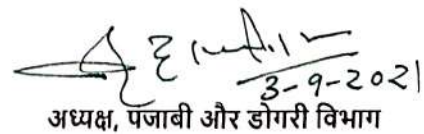 3-9-2021
अध्यक्ष, पंजाबी और डोगरी विभाग